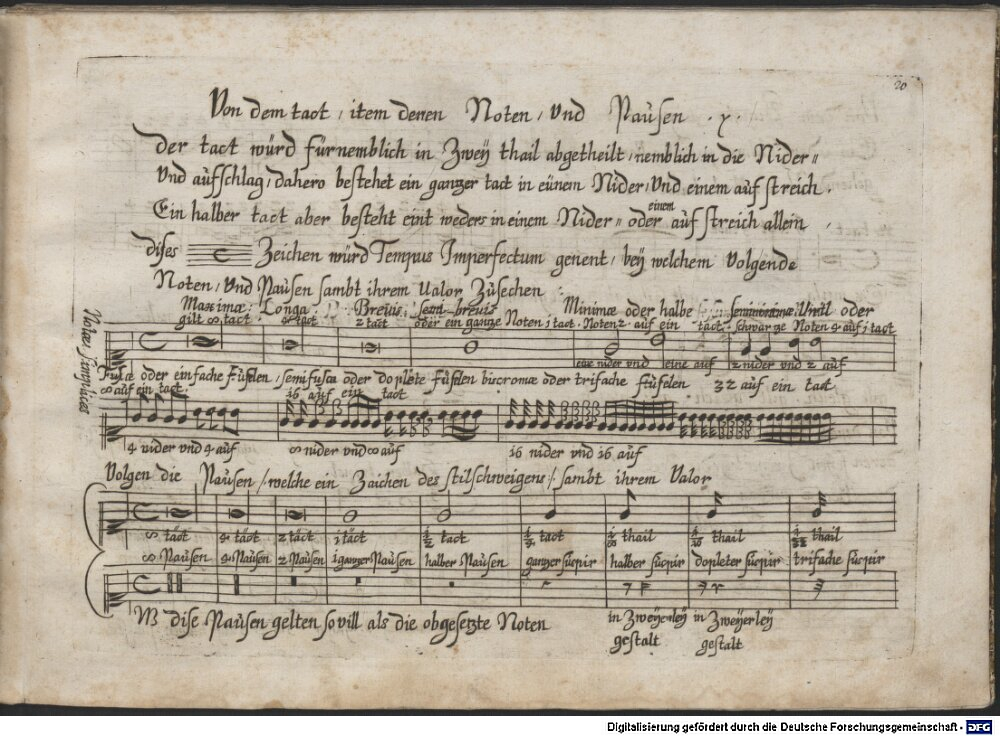 20
Von dem tact / item deren Noten / Vnd Pausen . x .
Der tact würd fürnemblich in Zwey thail abgetheilt / nemblich in die Nider //
Vnd aufschlag / dahero bestehet ein ganzer tact in einem Nider / Vnd einem auf streich .
Ein halber tact aber besteht eint weders in einem Nider // oder einem auf streich allein /
dises Zeichen würd Tempus Imperfectum genent / bey welchem Volgende
Noten / Vnd Pausen sambt ihrem Ualor Zusechen :
Maximæ : Longa : Brevis : Semi brevis Minimæ oder halbe Semiminimæ Virtl oder
gilt 8 tact . 4 tact 2 tact oder ein ganze Noten 1 tact . Noten 2 auf ein tact . schwarze Noten 4 auf 1 tact
Notæ simplices
eine nider vnd eine auf 2 nider vnd 2 auf
Fusæ oder einfache Fuselen / semifusæ oder doplete Fuselen biscromæ oder trifache fuselen 32 auf ein tact
8 auf ein tact 16 auf ein tact
4 nider vnd 4 auf 8 nider vnd 8 auf 16 nider vnd 16 auf
Volgen die Pausen / welche ein Zaichen des stilschweigens / sambt ihrem Valor
8 tact 4 tact 2 tact 1 tact 1/2 tact 1/4 tact 1/8 thail 1/16 thail 1/32 thail
8 Pausen 4 Pausen 2 Pausen 1 ganze Pausen halber Pausen ganzer suspir halber suspir dopleter suspir trifache suspir
NB dise Pausen gelten so vill als die obgesetzte Noten in Zweyerley in Zweyerley
gestalt gestalt
Digitalisierung gefördert durch die Deutsche Forschungsgemeinschaft - DFG